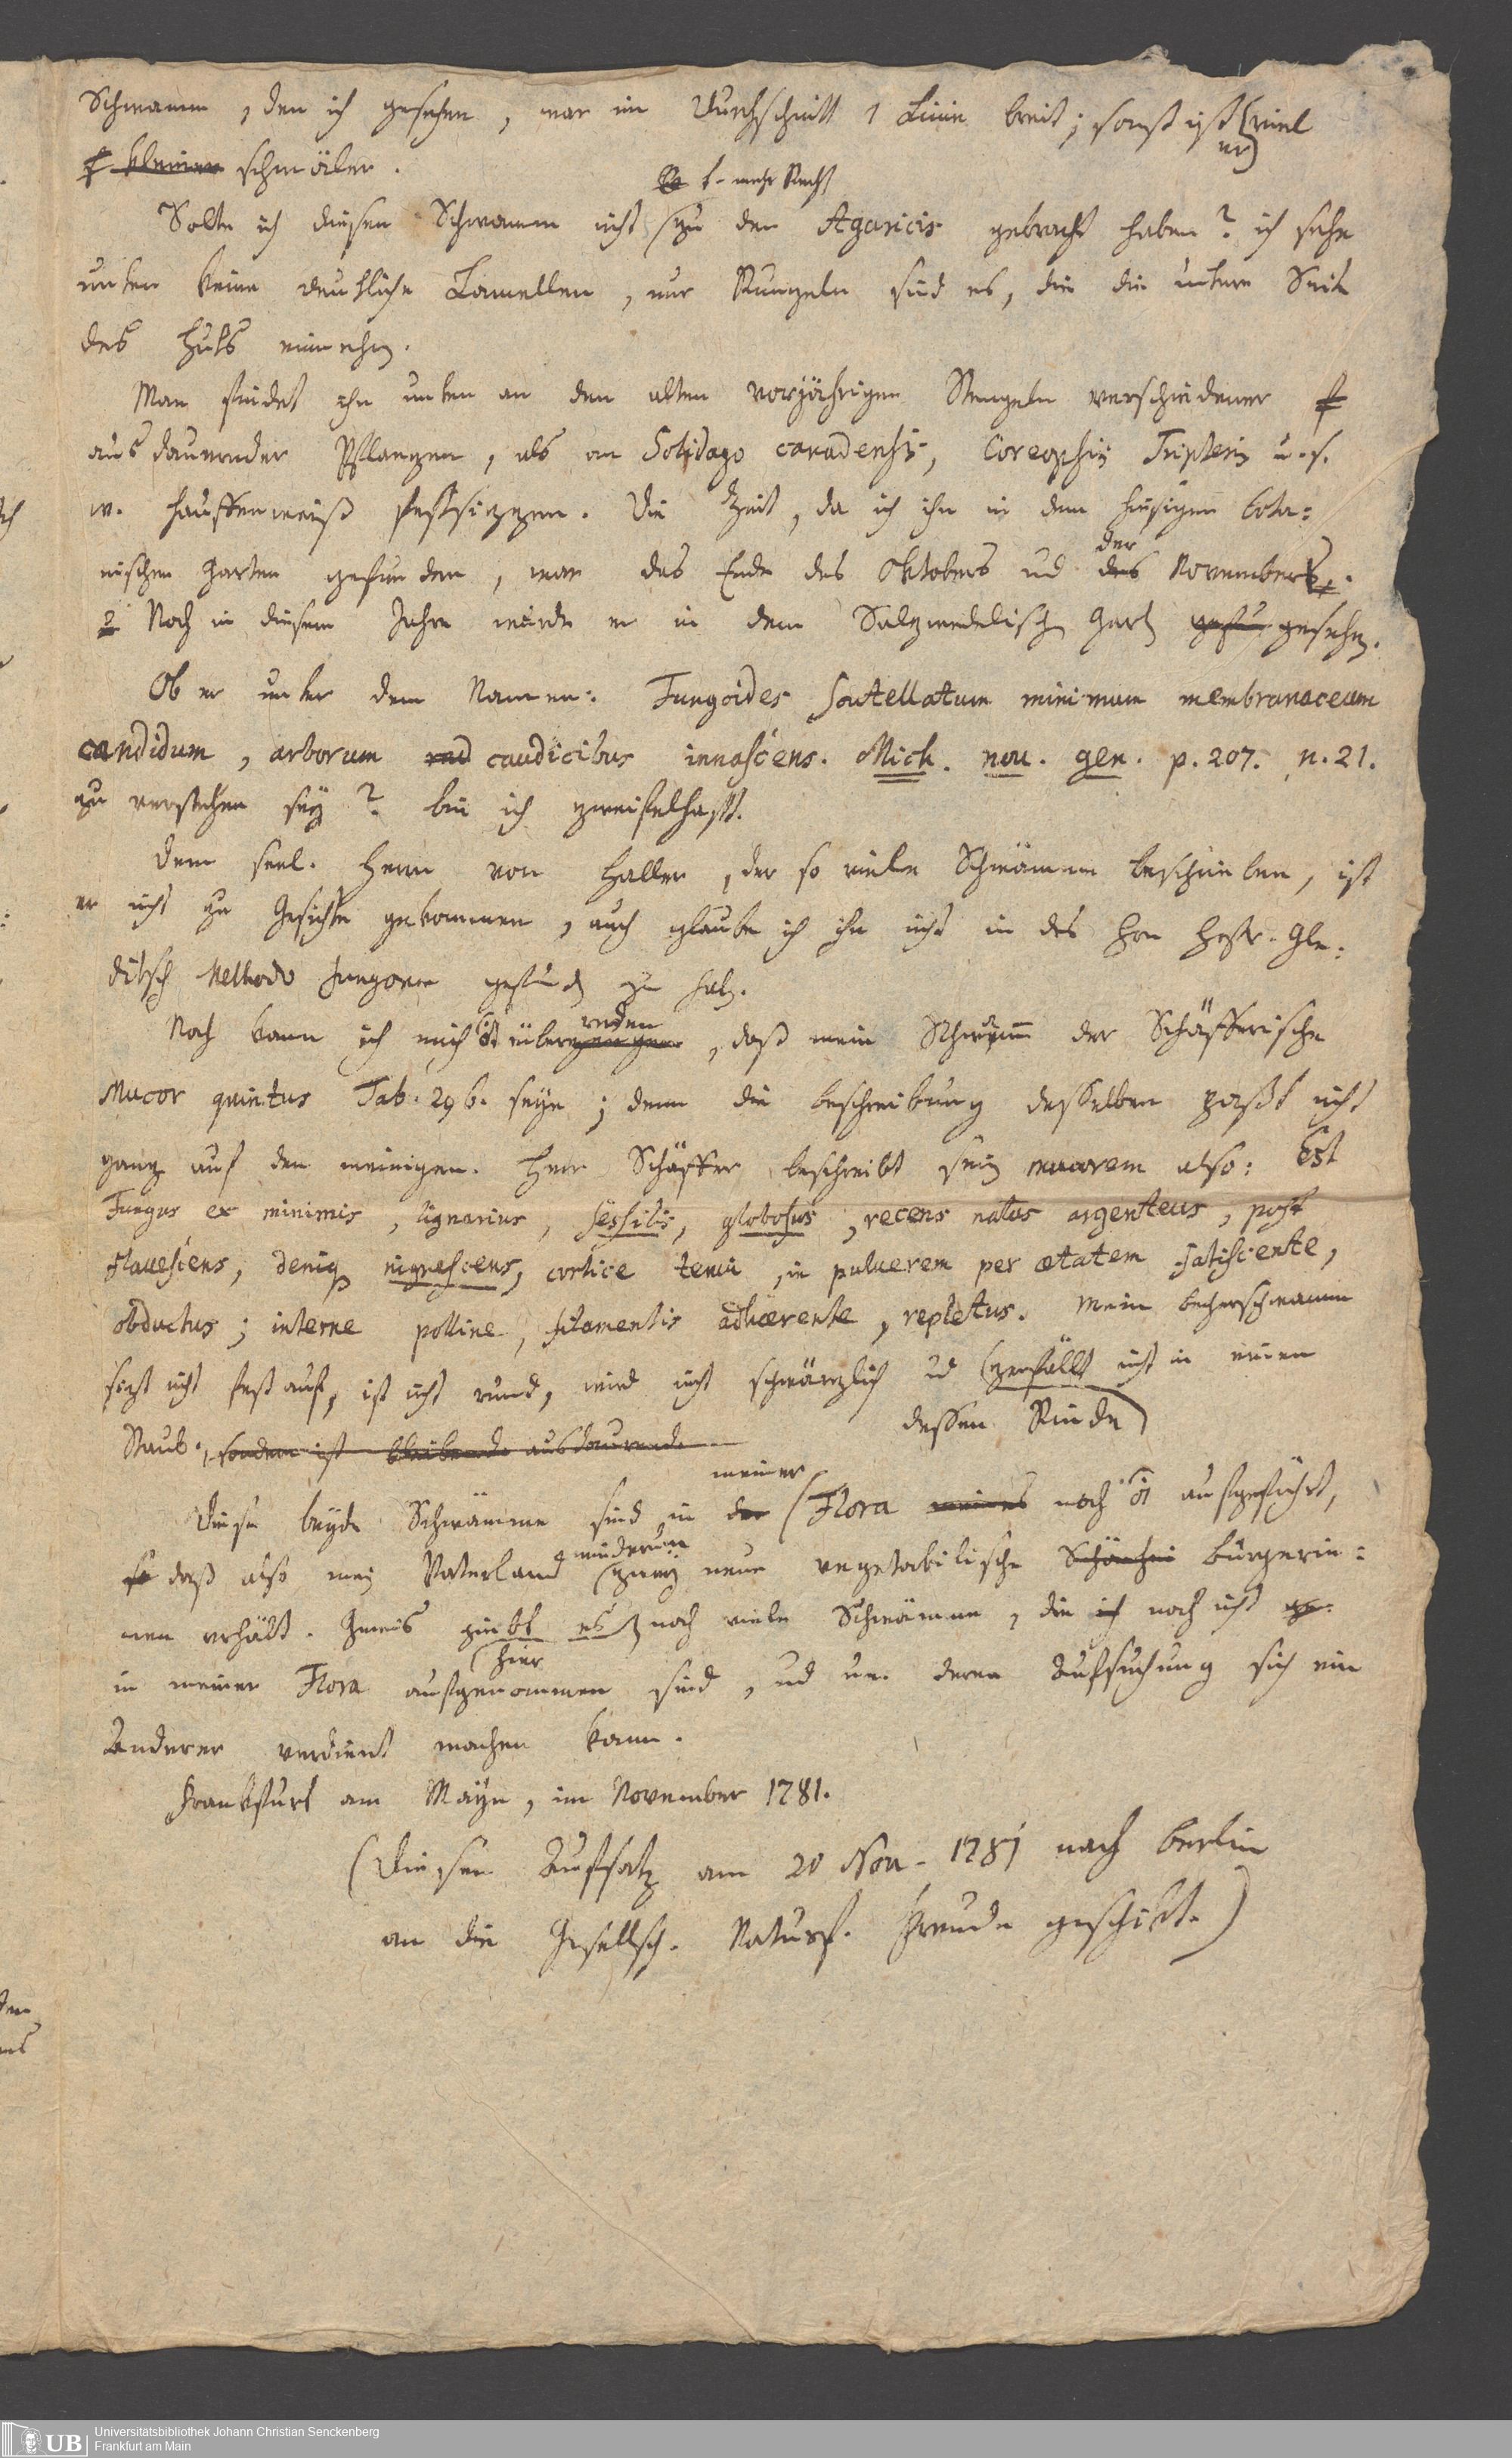 Schwamm, den ich gesehen, war im Durchschnitt 1 Linie breit; sonst ist er viel
kleiner schmäler.
mehr Recht
Solte ich diesen Schwamm nicht zu den Agaricis gebracht haben? ich sehe
unten keine deutliche Lamellen, nur Runzeln sind es, die die untere Seite
des Huts einnehmen.
Man findet ihn unten an den alten vorjährigen Stengeln verschiedener
ausdauernder Pflanzen, als an Solidago canadensis, Coreopsis Tripteris u. s.
w. hauffenweiß festsizzen. Die Zeit, da ich ihn in dem hiesigen bota=
nischen Garten gefunden, war das Ende des Oktobers und
der
des Novembers.
Noch in diesem Jahre wurde er in dem Salzwedelischen Garten gefu gesehen.
Ob er unter dem Namen: Fungoides scutellatum minimum membranaceum
candidum, arborum caudicibus innascens. Mich. nou. gen. p. 207. n. 21.
zu verstehen sey? bin ich zweifelhafft.
Dem seel. Herrn von Haller, der so viele Schwämme beschrieben, ist
er nicht zu Gesichte gekommen, auch glaube ich ihn nicht in des Hrn Hofr. Gle=
ditsch Methodo fungorum gefunden zu haben.
Noch kann ich mich nicht überzeugen
reden
, daß mein Schwamm der Schäfferische
Mucor quintus Tab. 296. seye; denn die beschreibung desselben paßt nicht
ganz auf den meinigen. Herr Schäffer beschreibt sein mucorem also: Est
Fungus ex minimis, lignarius, sessilis, globosus, recens natus argenteus, post
flauescens, deniq nigrescens, cortice tenui, in puluerem per ætatem fatiscente,
obductus; interne polline, filamentis adhærente, repletus. Mein becherschwamm
sizt nicht fest auf, ist nicht rund, wird nicht schwärzlich und zerfällt nicht in einen
Staub, sondern ist bleibende ausdaurende
dessen Rinde
meiner
Diese beyde Schwämme sind in der Flora meines noch nicht aufgeführt,
so daß also mein Vaterland
wiederum
zwey neue vegetabilische Schönhei bürgerin=
nen erhält. Gewis giebt es noch viele Schwämme, die ich noch nicht
hier
in meiner Flora aufgenommen sind, und um deren Aufsuchung sich ein
Anderer verdient machen kann.
Frankfurt am Mayn, im November 1781.
(Diesen Aufsatz am 20 Nov. 1781 nach berlin
an die Gesellsch. Naturf. Freunde geschikt.)
UB Universitätsbibliothek Johann Christian Senckenberg
Frankfurt am Main